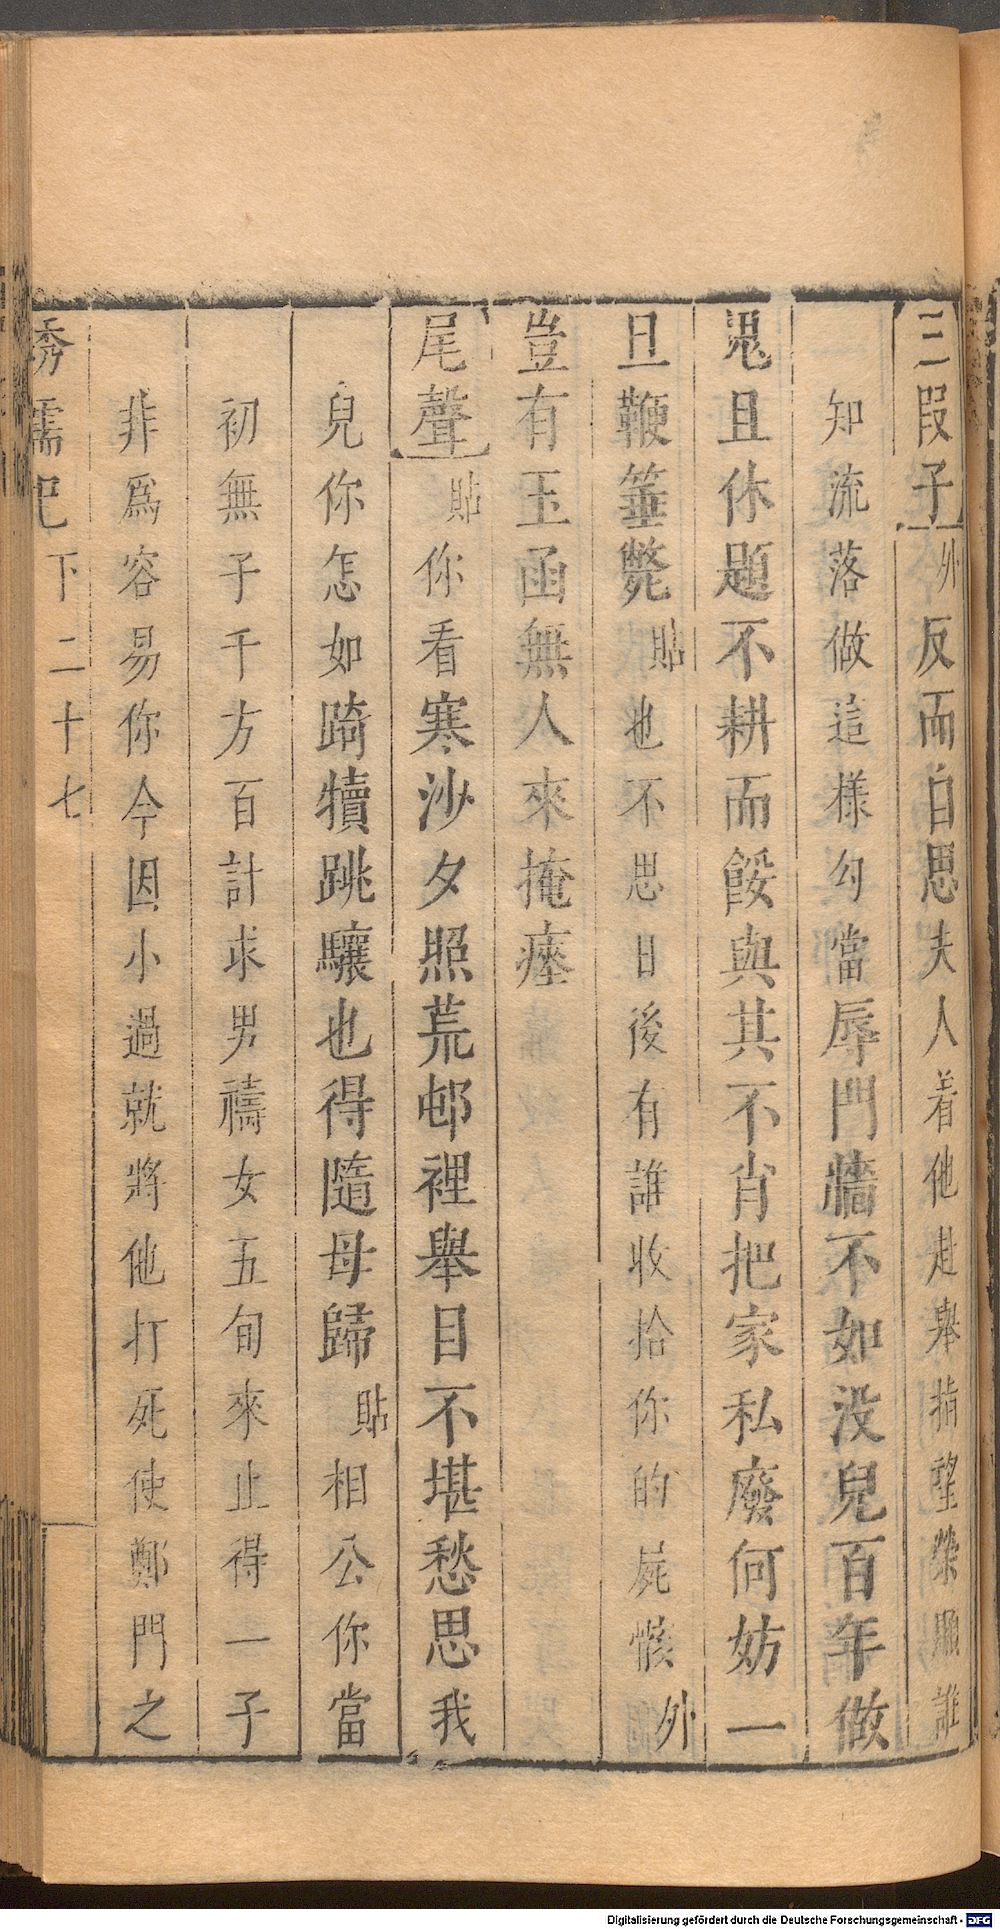 三段子外反而自思夫人着他赴舉指望榮顯誰
知流落做這樣勾當辱門牆不如没兒百年做
鬼且休題不耕而餒與其不肖把家私廢何妨一
旦鞭箠斃貼也不思日後有誰收拾你的屍骸外
豈有玉函無人來掩瘞
尾聲貼你看寒沙夕照荒邨裡舉目不堪愁思我
兒你怎如踦犢跳驤也得隨母歸貼相公你當
初無子千方百計求男禱女五旬來止得一子
非爲容易你今因小過就將他打死使鄭門之
綉襦記 下 二十七
Digitalisierung gefördert durch die Deutsche Forschungsgemeinschaft - DFG